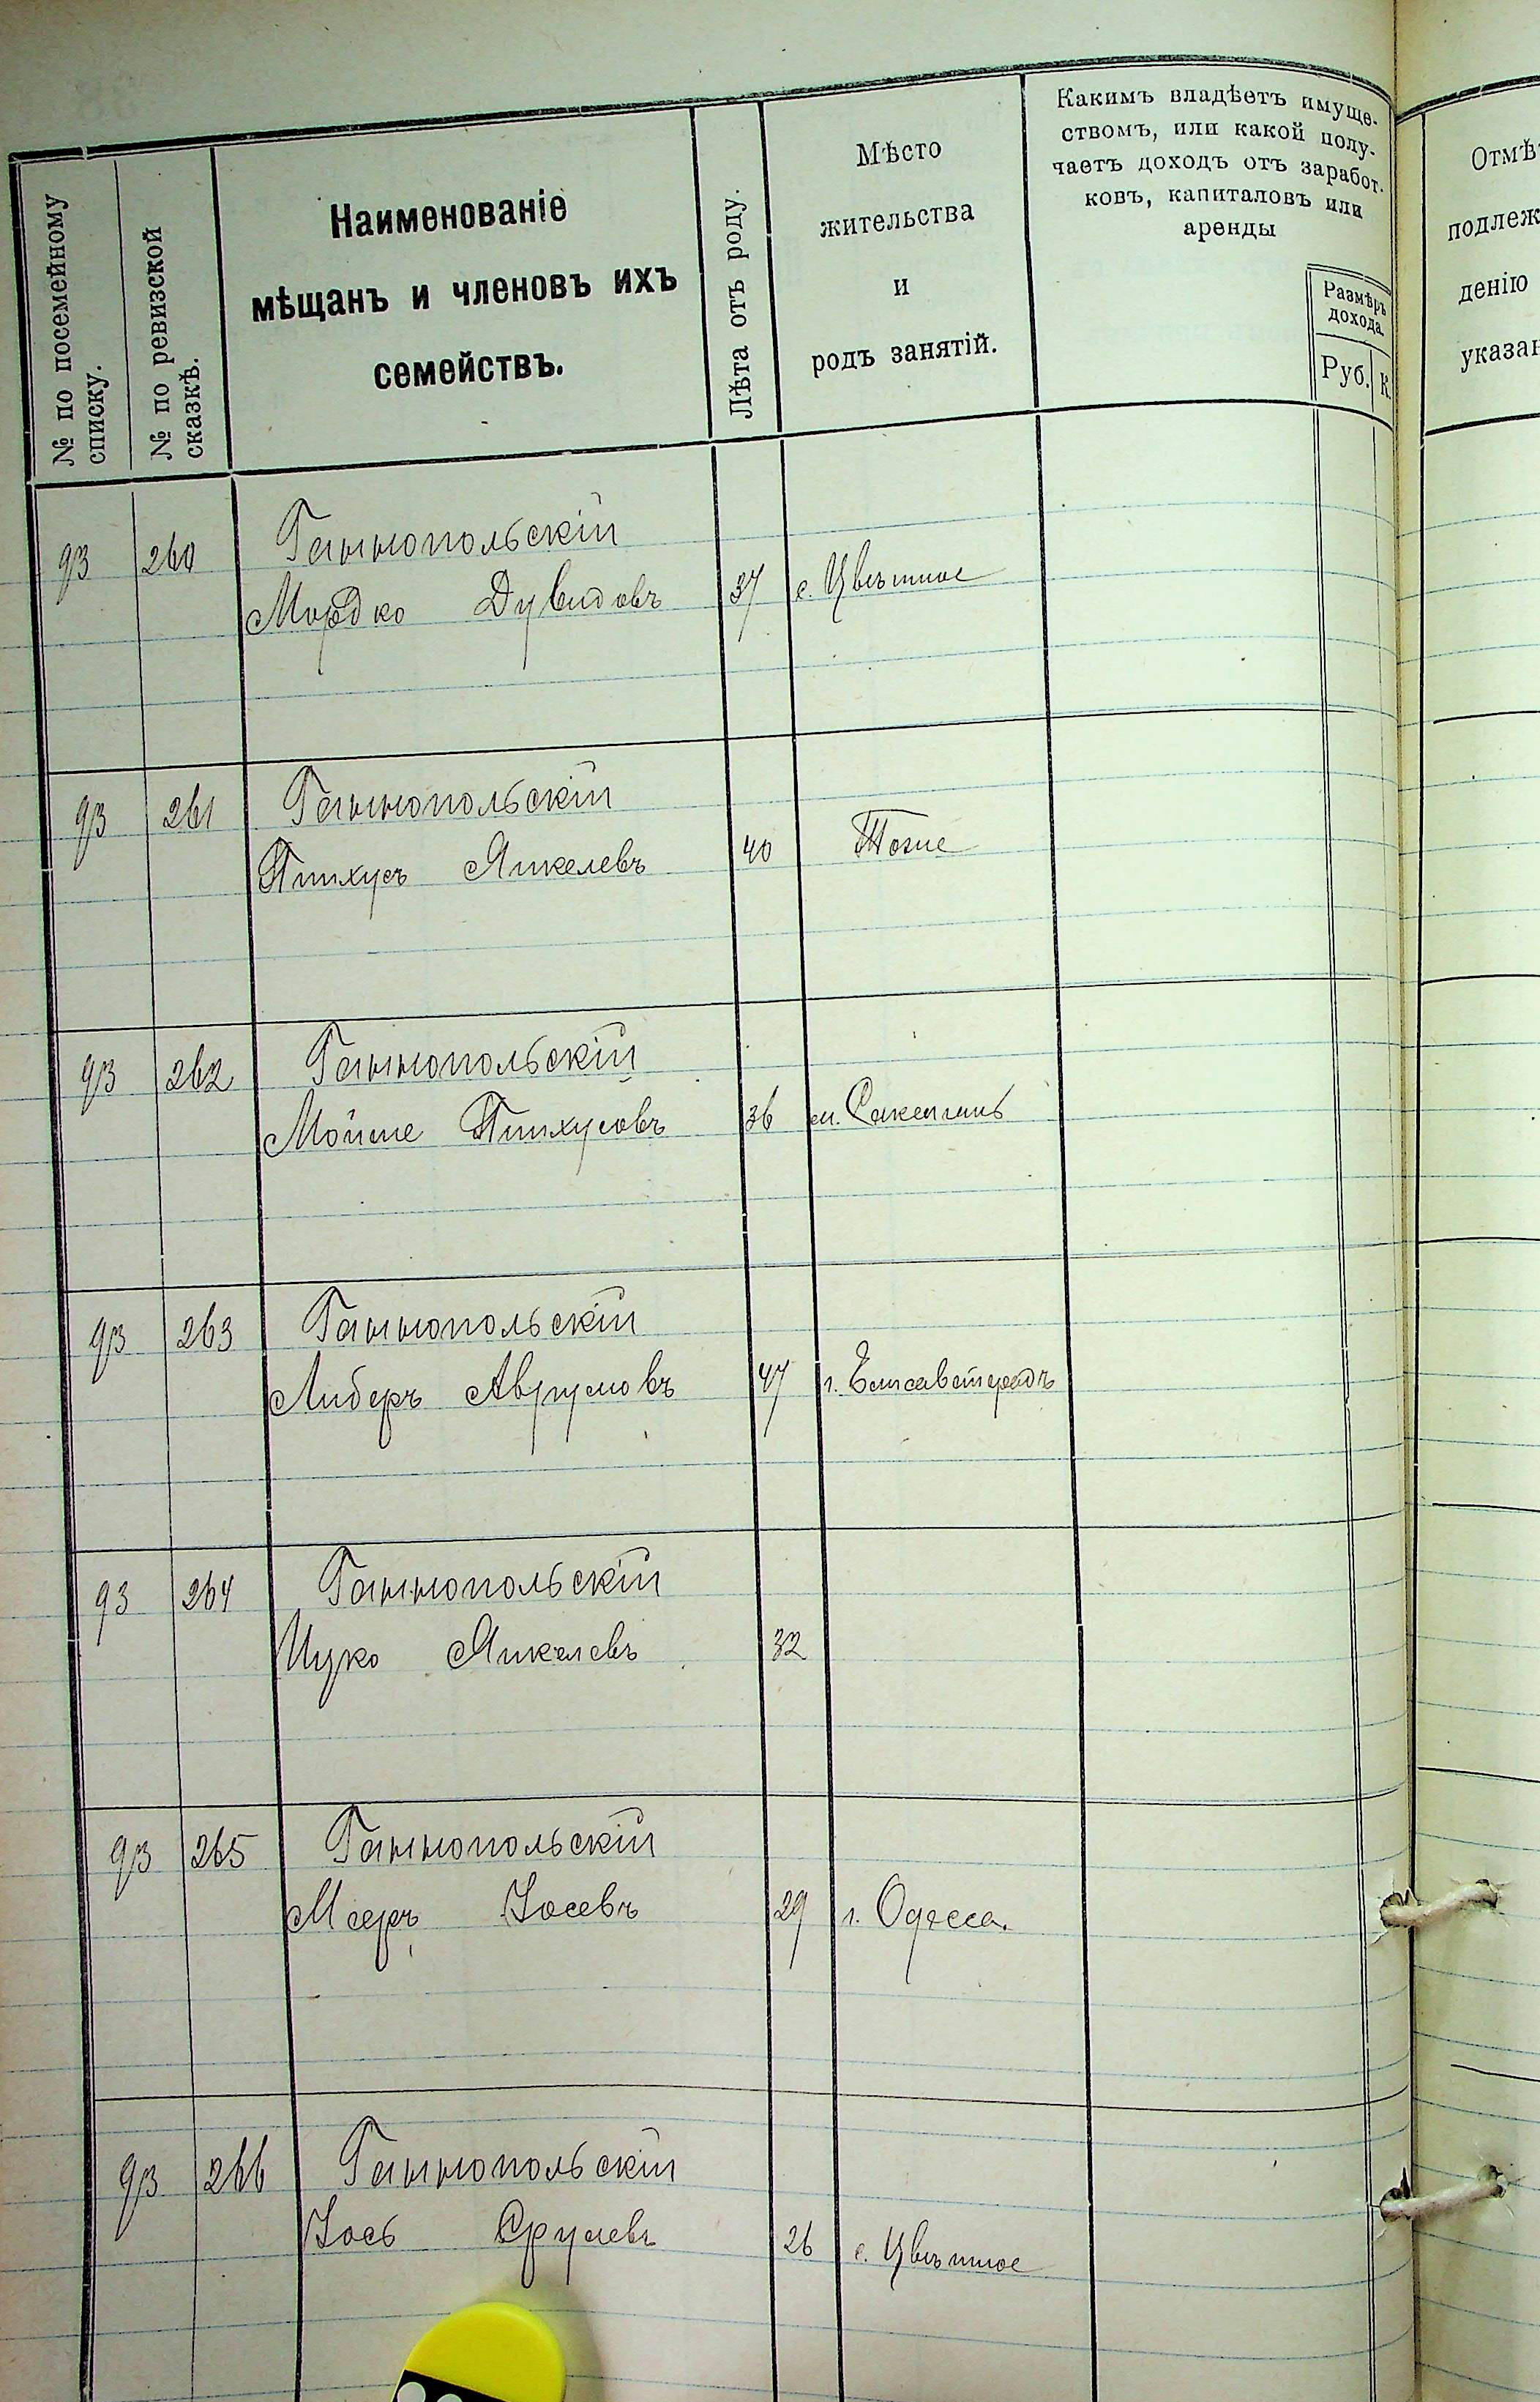 № по посемейному
списку.
№ по ревизской
сказкѣ.
Наименованіе
мѣщанъ и членовъ ихъ
семействъ.
Лѣта отъ роду.
Мѣсто
жительства
и
родъ занятій.
Какимъ владѣетъ имуще-
ствомъ, или какой полу-
чаетъ доходъ отъ заработ-
ковъ, капиталовъ или
аренды
Размѣръ
дохода.
Руб. К.
Отмѣ
подлеж
денію
указан
93 260 Ганнопольскій
Мордко Дувидовъ 37 с. Цвѣтное
93 261 Ганнопольскій
Пинхусъ Янкелевъ 40 Тоже
93 262 Ганнопольскій
Мойше Пинхусовъ 36
93 263 Ганнопольскій
Либеръ Аврумовъ 47 г. Елисаветградъ
93 264 Ганнопольскій
Ицко Янкелевъ 32
93 265 Ганнопольскій
Мееръ Іосевъ 29 г. Одесса.
93 266 Ганнопольскій
Іось Срулевъ 26 с. Цвѣтное